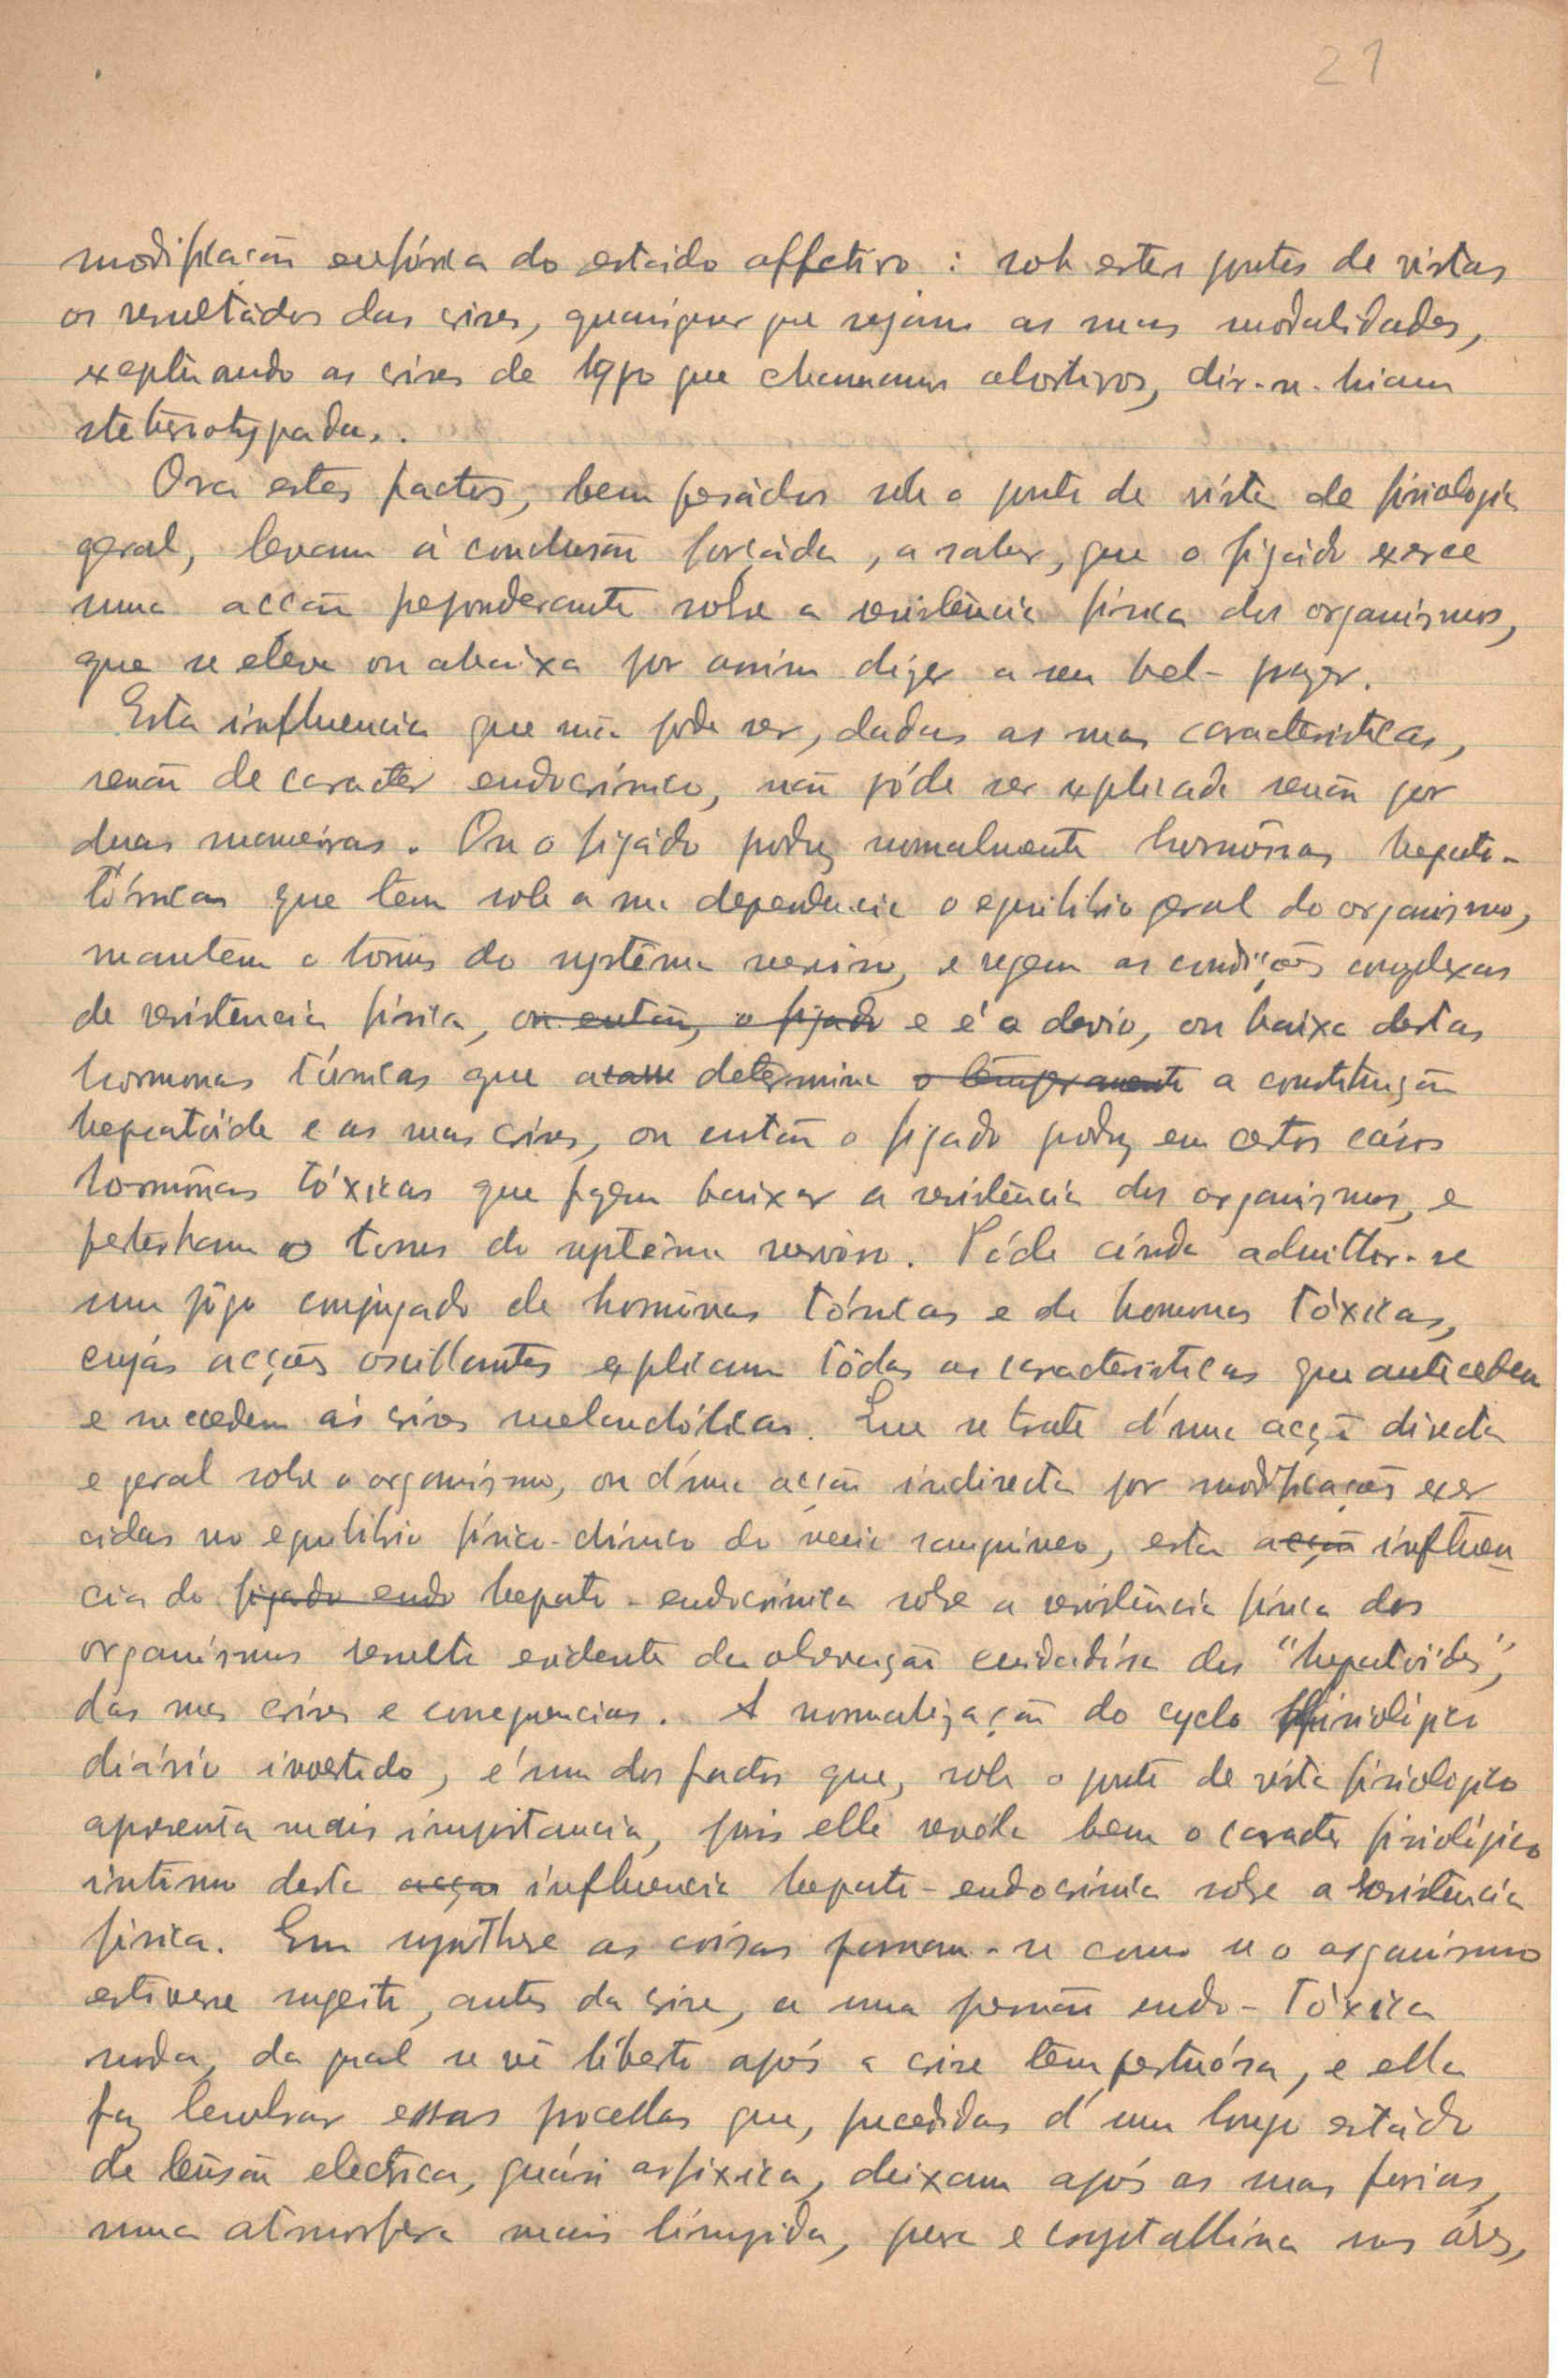 21
modificação eufórica do estado affectivo : sob estes pontos de vistas
os resultádos das crises, quaisquer que sejam as suas modalidades,
exeptuando as crises de typo que chamamos abortivos, dir-se-hiam
steteriotypadas.
Ora estes factos, bem pesádos sob o ponto de vista de fisiologia
geral, levam á conclusão forçáda, a saber, que o figádo exerce
uma acção preponderante sobre a resistência física dos organismos,
que se eleva ou abaixa por assim dizer a seu bel-prazer.
Esta influencia que não pode ser, dadas as suas caracteristicas,
senão de caracter endocrínico, não póde ser explicada senão por
duas maneiras. Ou o figádo produz normalmente hormónas hepato-
tónicas que tem sob a sua dependencia o equilibrio geral do organismo,
mantem o tonus do systêma nervoso, e regem as condições complexas
de resistencia física, ou então, o figado e é o desvio, ou baixa destas
hormonas tónicas que determina o temperamento a constituição
hepatóide e as suas crises, ou então o figado produz em certos cásos
hormónas tóxicas que fazem baixar a resistência dos organismos, e
perturbam o tonus do systêma nervoso. Póde ainda admittir-se
um jôgo conjugado de hormónas tónicas e de hormonas tóxicas,
cujás acções oscillantes explicam tôdas as caracteristicas que antecedem
e succedem ás crises melancólicas. Que se trate d'uma acção directa
e geral sobre o organismo, ou d'uma acção indirecta por modificações exer
cidas no equilibrio físico-chímico do meio sanguíneo, esta acção influen
cia do figado endo hepato-endocrínica sobre a resistência física dos
organísmos resulta evidente da observação cuidadósa dos "hepatóides",
das suas crises e consequencias. A normalização do cyclo fisiológico
diário invertido, é um dos factos que, sob o ponto de vista fisiologico
apresenta mais importancia, pois elle revéla bem o caracter fisiológico
intimo desta acção influencia hepato-endocrínica sobre a resistencia
física. Em synthese as coisas passam-se como se o organísmo
estivesse sugeito, antes da crise, a uma pressão endo-tóxica
surda, da qual se vê liberto após a crise tempestuósa, e ella
faz lembrar essas procellas que, precedidas d'um longo estádo
de tensão electrica, quási asfixica, deixam após as suas furias,
uma atmosfera mais límpida, pura e crystallina nos áres,